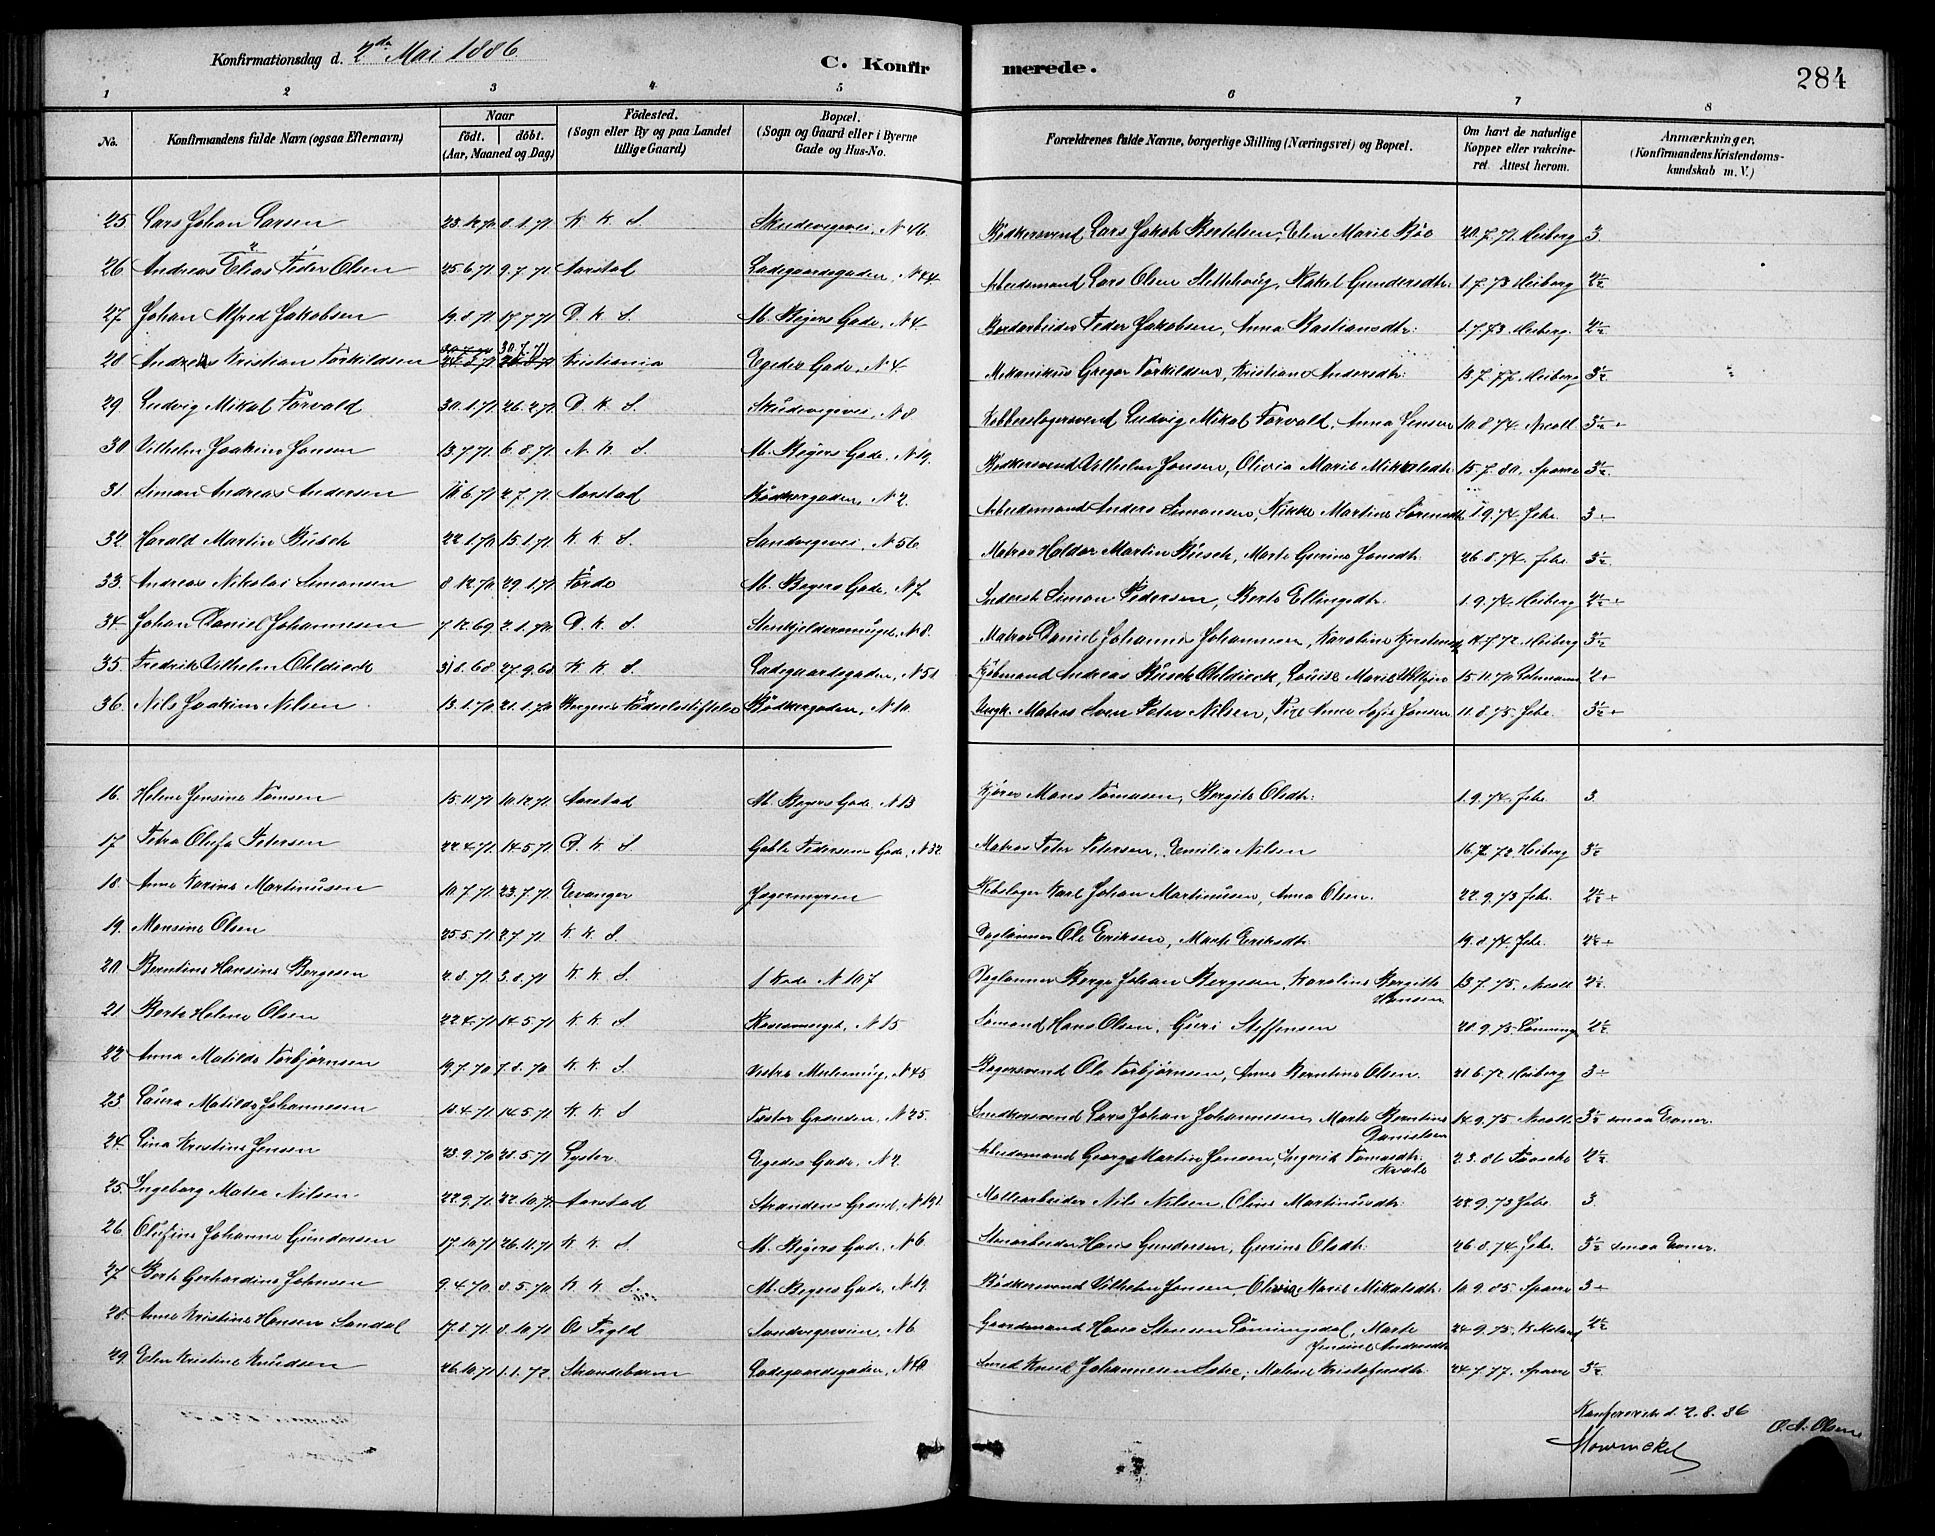 Konfirmationsdag d. 2de Mai 1886
C. Konfirmerede.
284
1 2 3 4 5 6 7 8
No. Konfirmandens fulde Navn (ogsaa Efternavn) Naar født. døbt. (Aar, Maaned og Dag) Fødested. (Sogn eller By og paa Landet tillige Gaard) Bopæl. (Sogn og Gaard eller i Byerne Gade og Hus-No. Forældrenes fulde Navne, borgerlige Stilling (Næringsvei) og Bopæl. Om havt de naturlige Kopper eller vakcineret. Attest herom. Anmærkninger, (Konfirmandens Kristendomskundskab m. V.)
25. Lars Johan Larsen 23.12.70 8.1.71 K. K. S. Skudevigsvei, N 46. Bødkersvend Lars Jakob Bertelsen, Elen Marie Bøe 20.7.71. Heiberg 3.
26 Andreas Elias Peder Olsen 25.6.71 9.7.71 Aarstad Ladegaardsgaden, N 44 Arbeidsmand Lars Olsen Slettehaug, Rakel Gundersdtr. 1.7.73 Heiberg 2½
27 Johan Alfred Jakobsen D. K. S. M. Kroyers Gade, N 4 Peder Jakobsen, Anna Bastiansdtr. 1.7.73 Heiberg. 2½
28 Andreas Kristian Torkildsen 30.7.71 Kristiania Egedes Gade, N 4 Mekanikus Gregor Torkildsen, Kristiane Andersdtr. 13.7.77 Heiberg 3½
29 Ludvig Mikal Torvald 30.1.71 26.2.71 D. K. S. Skudevigsvei, N 8. Kobberslagersvend Ludvig Mikal Torvald, Anna Jensen 10.8.74. 3½ +
30 Vilhelm Joakim Jansen 13.7.71 6.8.71 N. K. S. Gade, N 19. Bødkersvend Vilhelm Jansen, Olivia Marie Mikkelsdtr. 15.7.80. Sparre 3½
31. Simon Andreas Andersen 2.7.71. Aarstad Bødkergaden, N 2. Arbeidsmand Anders Simonsen, Rikke Martine Sørensdtr. 1.9.74. Jebe. 3 ÷
32. Harald Martin Busch 15.1.71. K. K. S. Sandvigsvei, N 56 Matros Martin Busch, Marte Gurine Jansdtr. 26.8.74. Jebe. 3½
33. Andreas Nikolai Simonsen 8.12.70 29.1.71 Førde Gade, N 7 Simon Pedersen, Berte Ellingsdtr. 1.9.74 Heiberg 2½ +
34 Johan Daniel Johannesen 7.12.69 2.1.70 D. K. S. Stenkjeldersmuget, N 8. Matros Daniel Johannes Johannesen, Karoline 72 Heiberg 3½
35. Fredrik Vilhelm Ohldieck 31.8.68. 27.9.68 K. K. S. Ladegaardsgaden, N 51 Kjøbmand Andreas Busch Ohldieck, Louise Marie 15.11.70 2 +
36. Nils Joakim Nilsen 13.1.70 21.1.70 Bergens Fødselsstiftelse Bødkergaden, N 10. Ungk. Matros Sven Peter Nilsen, Pige Anne Sofie Jansen 11.8.75. Jebe. 3½ +
16. Helene Jensine Tomsen 15.11.71 10.12.71. Aarstad Gade, N 13 Kjører Mons Tomasen, Bergite Olsdtr. 1.9.74. Jebe 3.
17 Petra Olufa Petersen 22.4.71 14.5.71 D. K. S Gabl. Pedersens Gade, N 32 Matros Peter Petersen, Emilie Nilsen 16.7.72. Heiberg 3½
18. Anne Karine Martinusen 10.7.71 23.7.71. Evanger Jægermyren Karl Johan Martinusen, Anna Olsen. 22.9.73 Jebe. 2½ +
19. Monsine Olsen 25.5.71. 2.7.71. K. K. S. Daglønner Ole Eriksen, Marte Eriksdtr. 19.8.74. Jebe. 2½ +
20 Berntine Hansine Bergesen 2.8.71. K. K. S. N 107 Daglønner Berge Johan Bergesen, Karoline Bergitte Hansen 13.7.75. 2½
21 Berte Helene Olsen 22.4.71 14.5.71 K. K. S. Rosesmuget, N 15 Sømand Hans Olsen, Guri Steffensen 20.9.75 Lønning 2½
22 Anna Matilde Torbjørnsen 19.7.70 7.8.70 K. K. S. Vestre Murlemug, N 45. Bagersvend Ole Torbjørnsen, Anne Berntine Olsen. 21.6.72 Heiberg 3 ÷
23. Laura Matilde Johannesen 10.4.71 14.5.71 K. K. S Toster Grænden, N 25. Smedkersvend Lars Johan Johannesen, Marte Berntine Danielsen 14.9.75. 3½ smaa Evner.
24. Lina Kristine Jensen 23.9.70 21.5.71 Lyster. Egedes Gade, N 2. Arbeidsmand Georg Martin Jensen, Ingerid Tomasdtr. Kvale 2.3.86 Faaske 2½
25. Ingeborg Matea Nilsen. 22.9.71 22.10.71 Aarstad Strandens Grænd, N 191. Møllearbeider Nils Nilsen, Oline Martinusdtr. 22.9.73 Jebe. 3
26. Olufine Johanne Gundersen 17.10.71 26.11.71 K. K. S. Gade, N 6 Stenarbeider Hans Gundersen, Gurine Olsdtr. 26.8.74 Jebe. 3½ smaa Evner.
27 Berte Gerhardine Johnsen 9.4.70 8.5.70 K. K. S. Gade, N 19. Bødkersvend Vilhelm Jansen, Olivia Marie Mikalsdtr. 10.9.85. Sparre 3 ÷
28. Anne Kristine Hansen Sandal 17.8.71. 8.10.71 Os Sandvigsveien, N 6 Gaardmand Hans Stensen Lønningdal, Marte Jensine Andersdtr. 24.9.75. 2½
29. Elen Kristine Knudsen 26.10.71 1.1.72. Strandebarm Ladegaardsgaden, N 40 Smed Knud Johannesen, Malene Kristofersdtr. 24.7.77. Sparre 3½
Konfereret d. 2.8.86
Mowinckel
O. A. Olsen